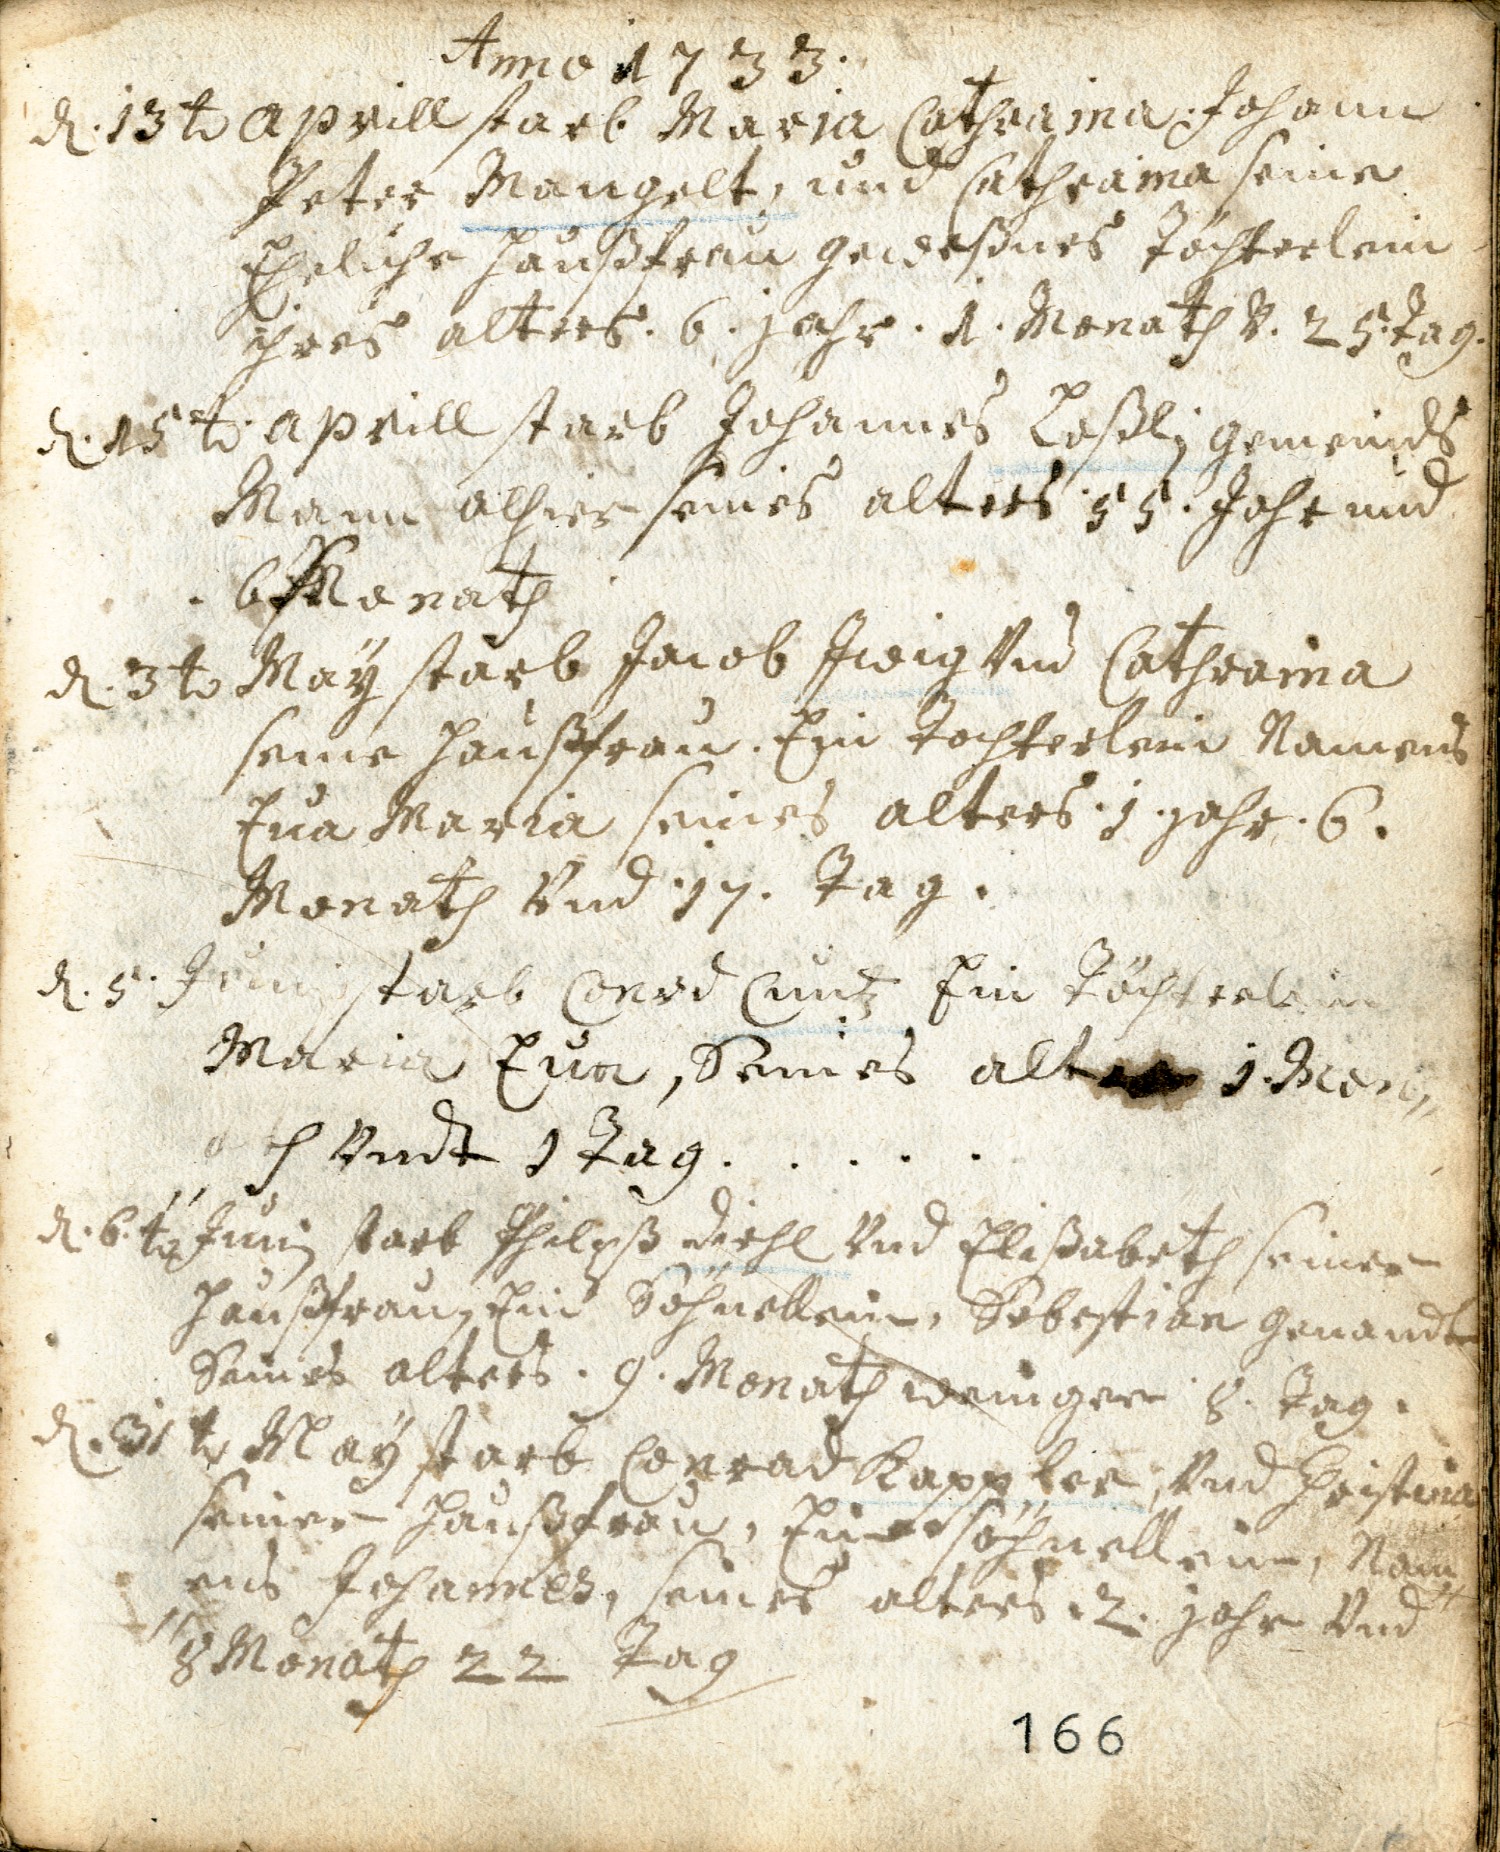 Anno 1733.
d. 13t Aprill starb Maria Cathraina Johann
Peter Mangelt, und Cathraina seine
Eheliche Haußfrau geweßnes Töchterlein
ihres alters. 6. jahr. 1. Monath V. 25 Tag.
d. 15t. Aprill starb Johannes gemeinds
Mann alhier seines alters 55. Jahr und
6 Monath
d. 3t May starb Jacob Vnd Cathraina
seine Haußfrau. Ein Tochterlein Namens
Eua Maria seines alters. 1. jahr. 6.
Monath Vnd 17. Tag.
d. 5. Juni starb Conrd Cuntz Ein Töchterlein
Maria Eua, Seines alters 1. Mon„
„ath Vndt 1 Tag. . . . . .
d. 6.t Junij starb Philipß Diehl Vnd Elisabeth seiner
Haußfrau, Ein Söhnellein, Sebastian genandt
Seines alters. 9. Monath weniger 8. Tag.
d. 31t May starb Conrad Kappler, Vnd Christina
seiner Haußfrau, Ein söhnellein, Nam„
„ens Johannes, seines alters. 2. jahr Vnd
8 Monath 22 Tag
166